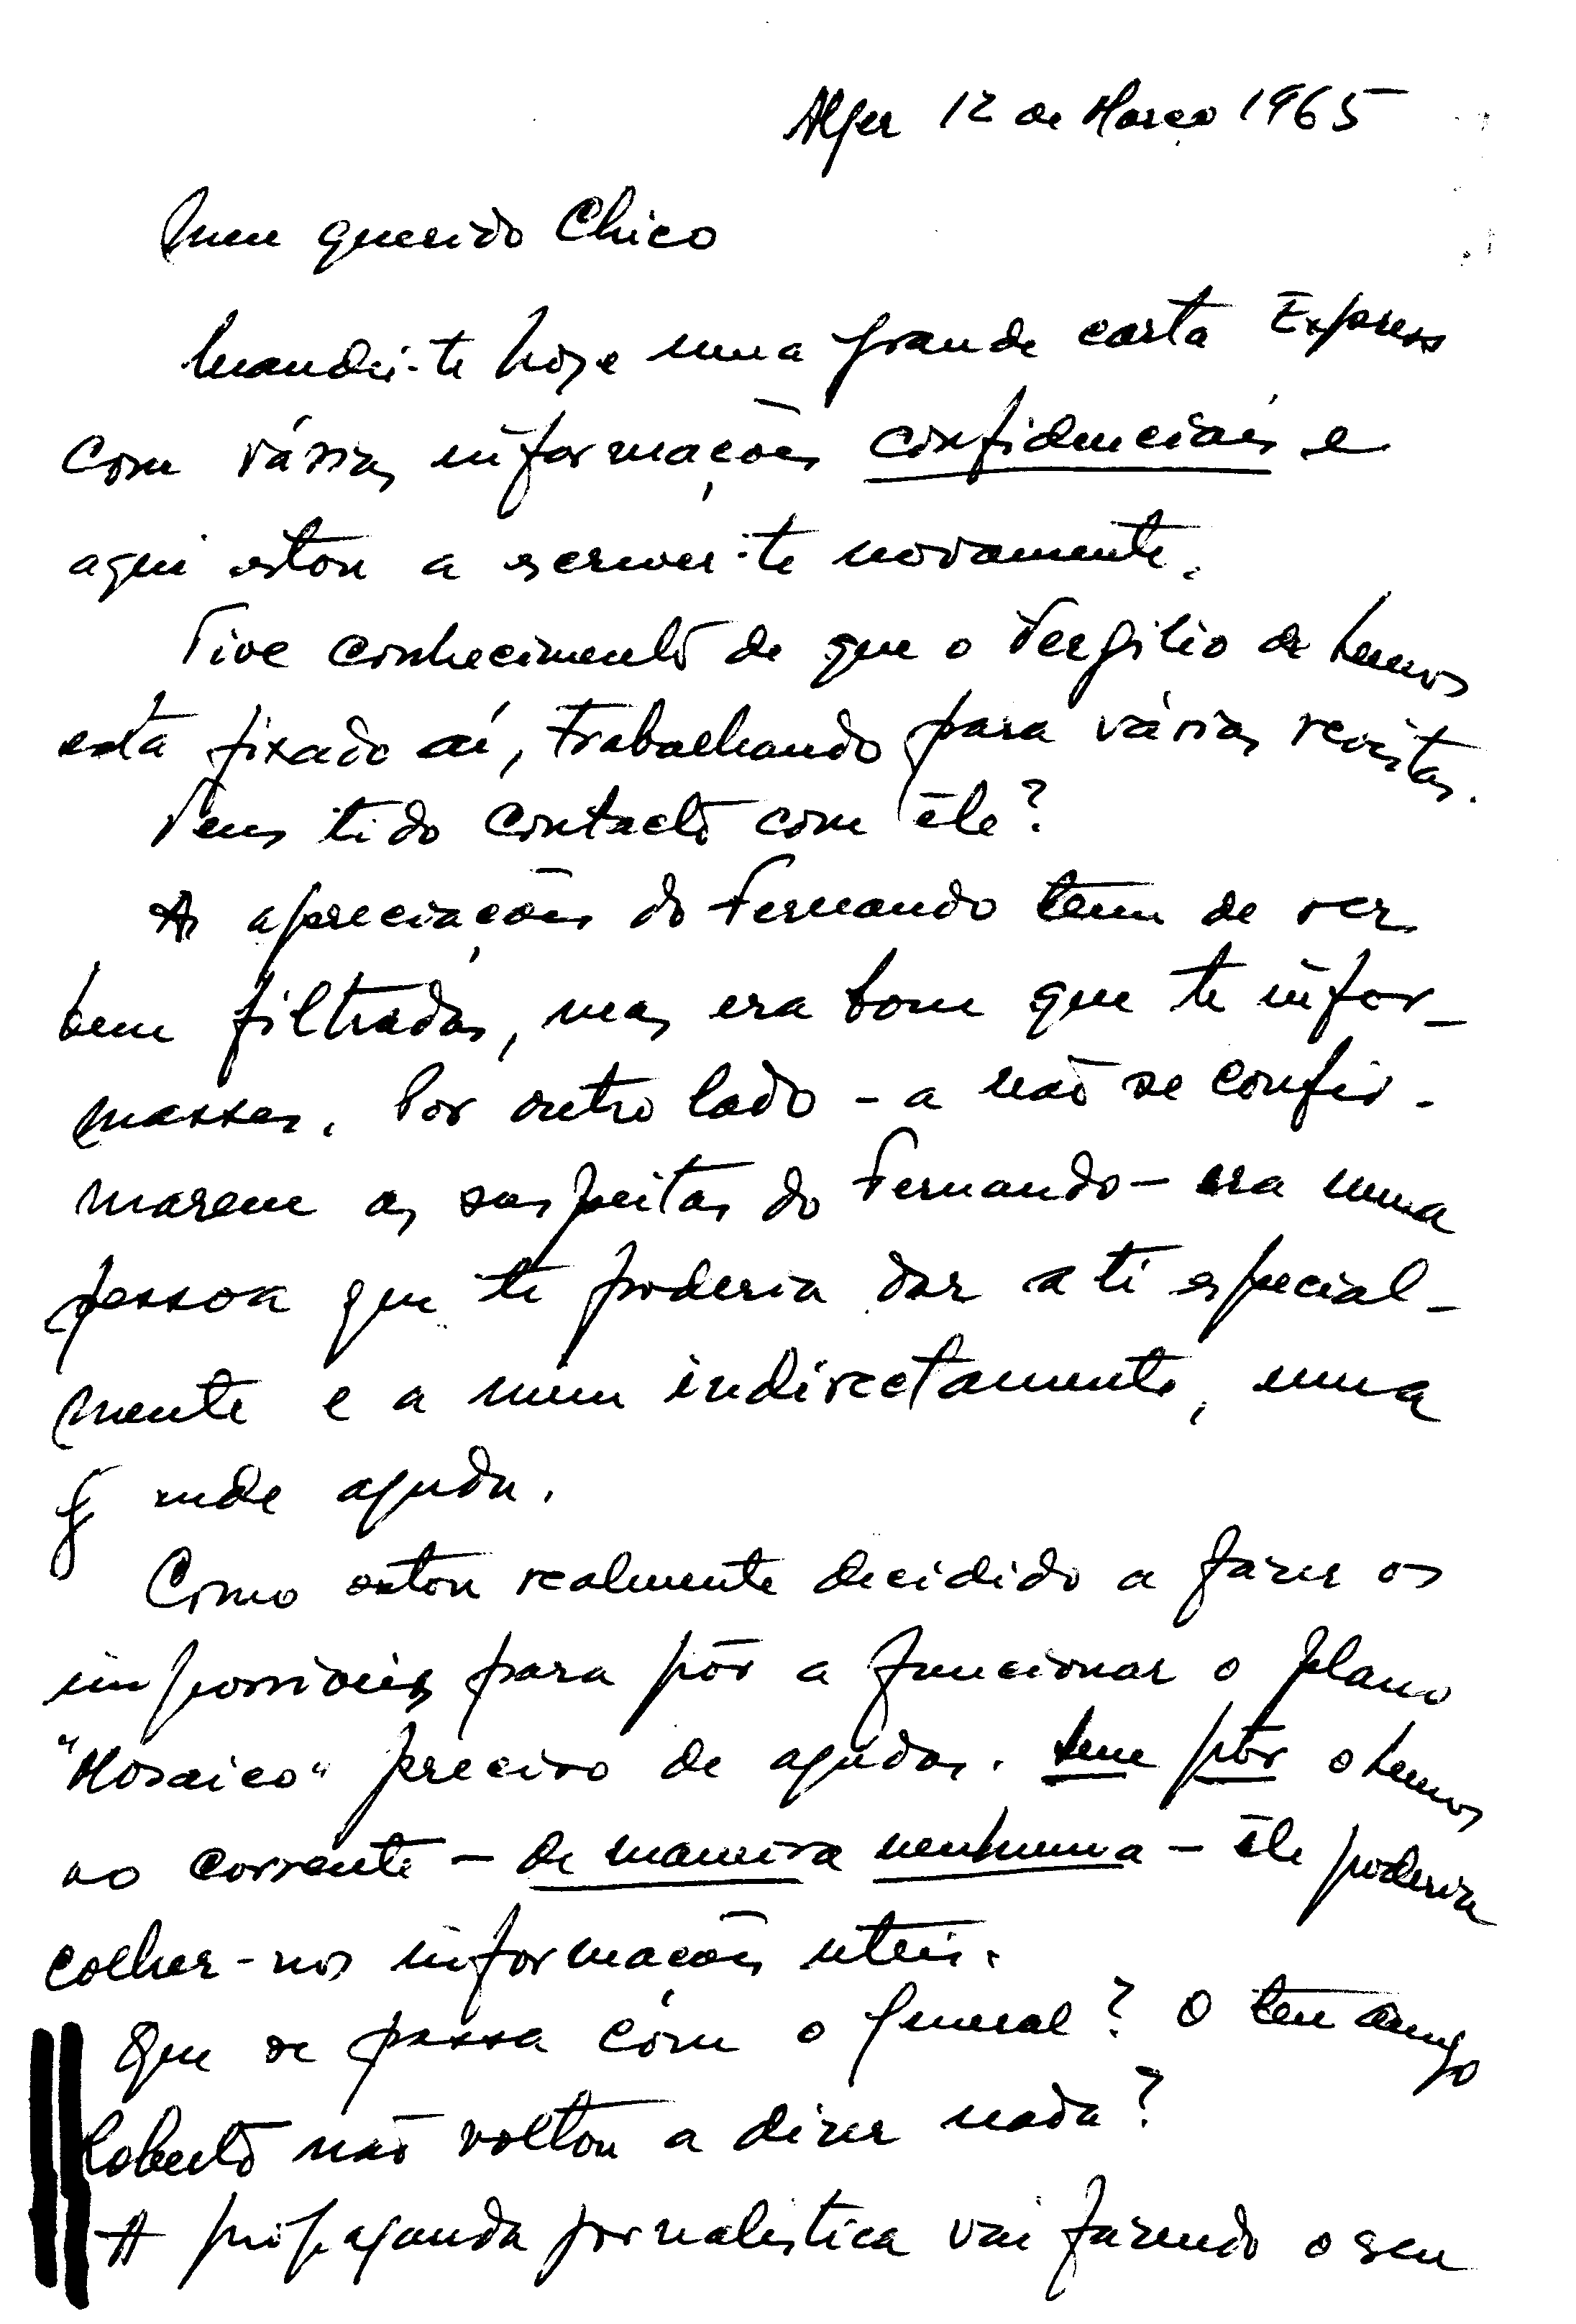 Alger 12 de Março 1965
Meu querido Chico
Mandei-te hoje uma grande carta Express
com várias informações confidenciais e
aqui estou a escrever-te novamente.
Tive conhecimento de que o Vergilio de Lemos
está fixado aí, trabalhando para várias revistas.
Tens tido contacto com êle?
As apreciações do Fernando têm de ser
bem filtradas, mas era bom que te infor-
masses. Por outro lado - a não se confir-
marem as suspeitas do Fernando - era uma
pessoa que te poderia dar a ti especial-
mente e a mim indirectamente, uma
grande ajuda.
Como estou realmente decidido a fazer os
impossiveis para pôr a funcionar o plano
"Mosaico" preciso de ajudas. Sem pôr o Lemos
ao corrente - de maneira nenhuma - êle poderia
colher-nos informações uteis.
Que se passa com o general? O teu amigo
Roberto não voltou a dizer nada?
A propaganda jornalistica vai fazendo o seu